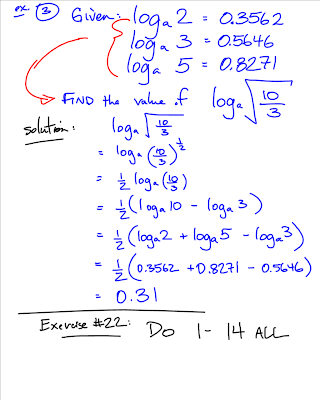 ex. ③ Given: logₐ 2 = 0.3562
logₐ 3 = 0.5646
logₐ 5 = 0.8271
→ FIND the value of logₐ √(10/3)
solution: logₐ √(10/3)
= logₐ (10/3)^½
= ½ logₐ (10/3)
= ½ (logₐ 10 − logₐ 3)
= ½ (logₐ 2 + logₐ 5 − logₐ 3)
= ½ (0.3562 + 0.8271 − 0.5646)
= 0.31
Exercise #22: Do 1 - 14 ALL